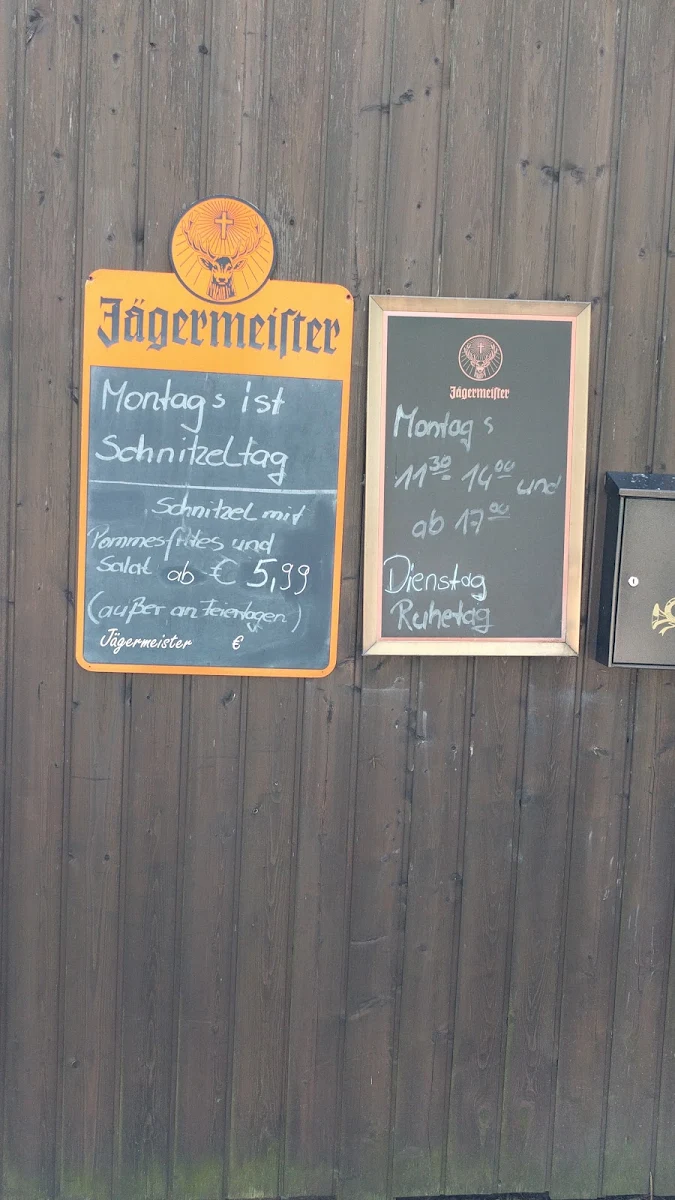 Jägermeiſter
Montags ist
Schnitzeltag
Schnitzel mit
Pommesfrites und
Salat ab € 5,99
(außer an Feiertagen)
Jägermeister €
Jägermeiſter
Montags
11³⁰ 14⁰⁰ und
ab 17⁰⁰
Dienstag
Ruhetag